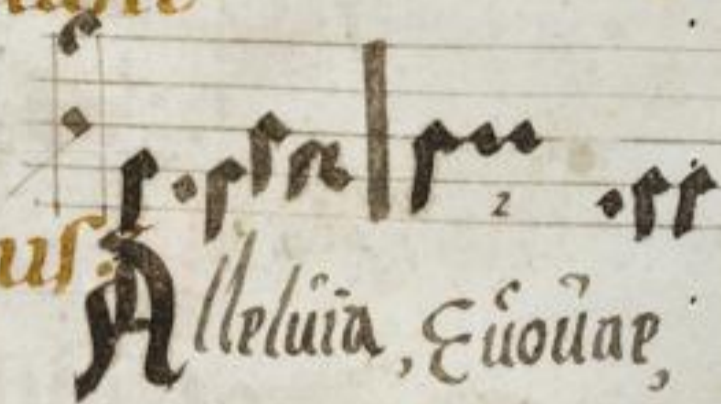 us.
Alleluia, Euouae,
2